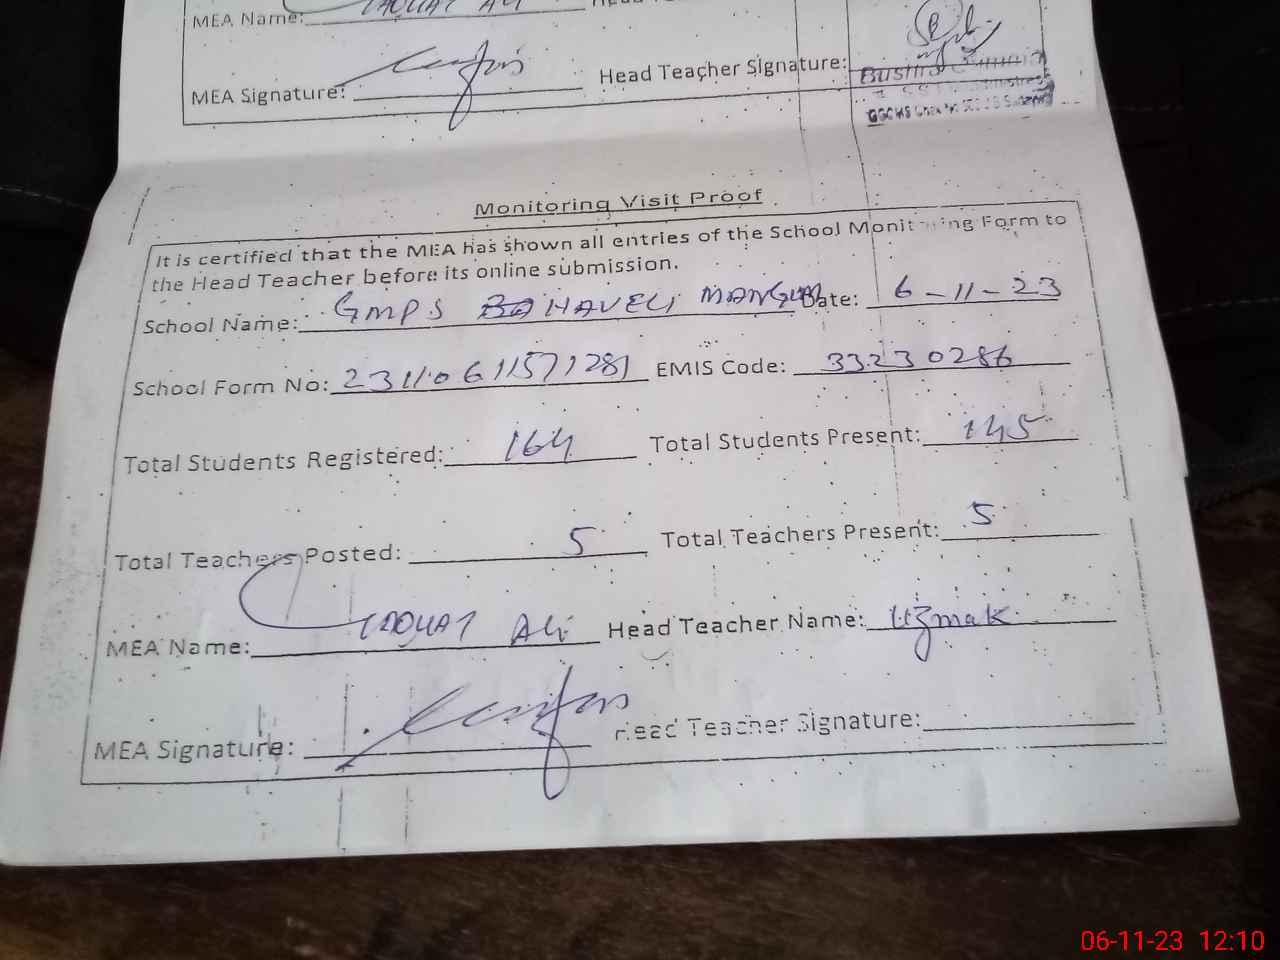 MEA Name: LAQUAT ALI
MEA Signature: Head Teacher Signature:
Monitoring Visit Proof
It is certified that the MEA has shown all entries of the School Monitoring Form to
the Head Teacher before its online submission.
School Name: GMPS HAVELI Date: 6-11-23
School Form No: 23110611571281 EMIS Code: 33230286
Total Students Registered: 164 Total Students Present: 145
Total Teachers Posted: 5 Total Teachers Present: 5
MEA Name: LAQUAT ALI Head Teacher Name: Uzmak
MEA Signature: Head Teacher Signature:
06-11-23 12:10